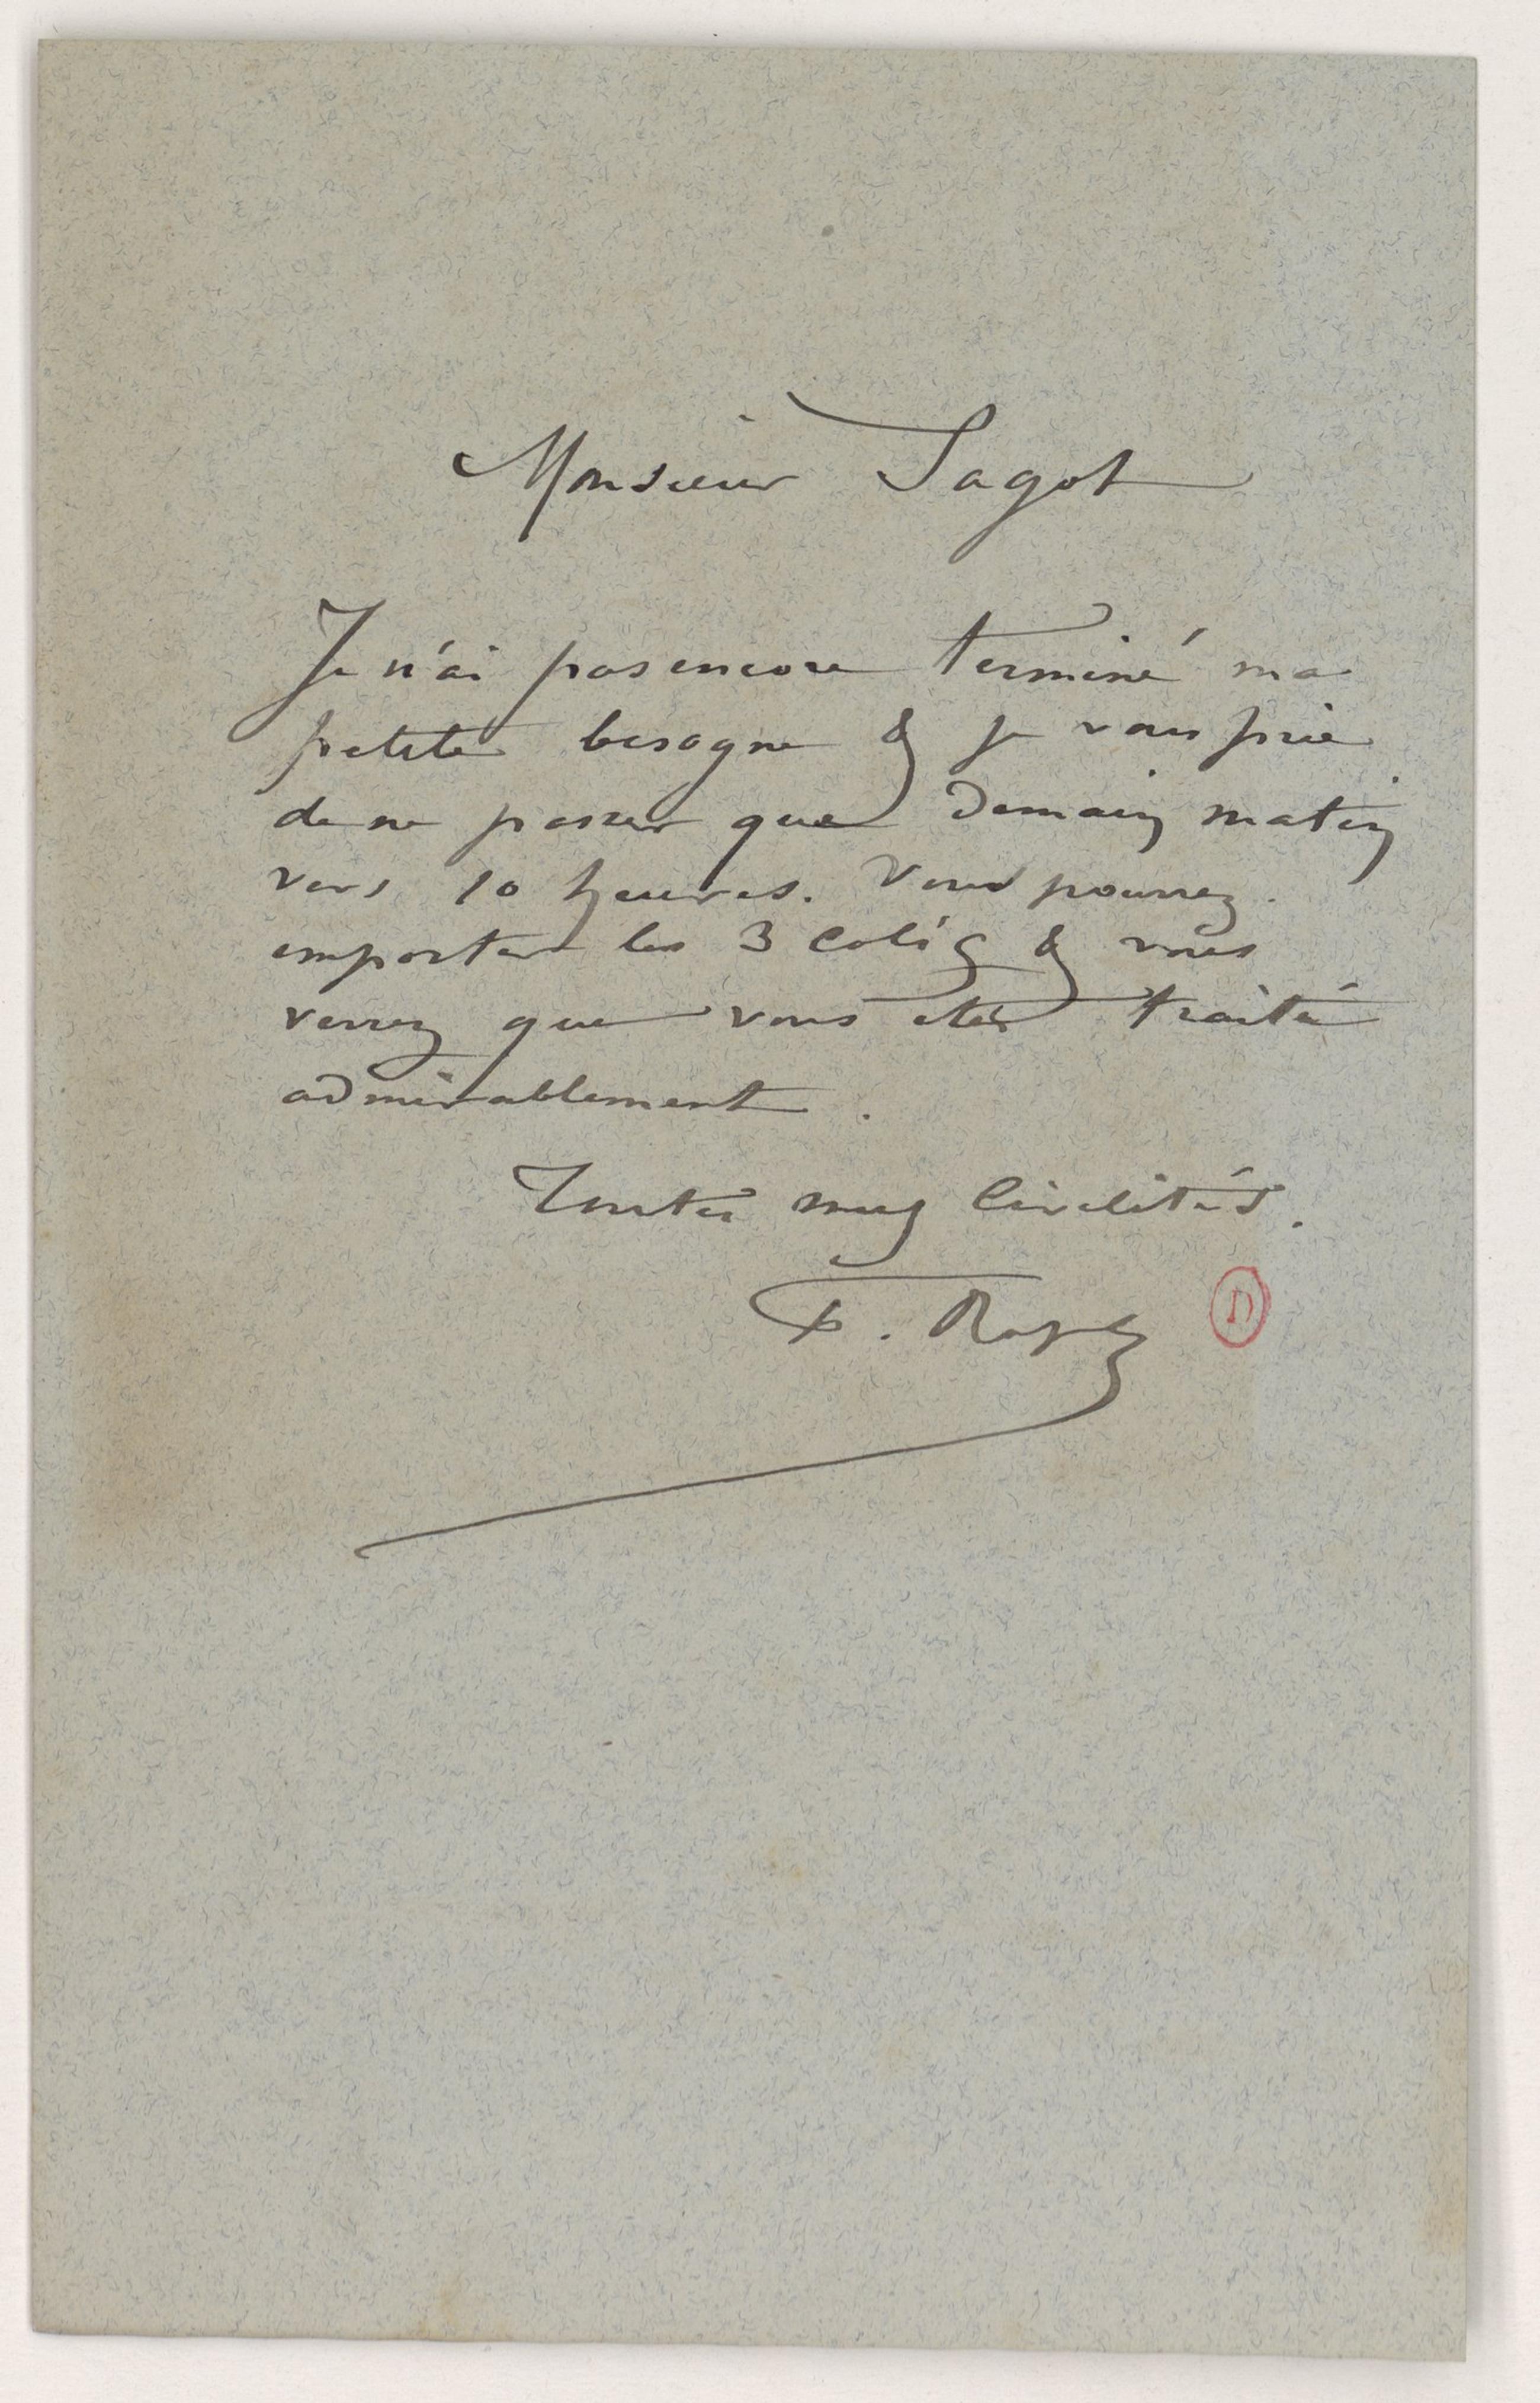 Monsieur Sagot
Je n'ai pas encore terminé ma
petite besogne & je vous prie
de ne passer que demain matin
vers 10 heures. Vous pourrez
emporter les 3 colis & vous
verrez que vous êtes traité
admirablement.
Toutes mes civilités.
F. Rops
D